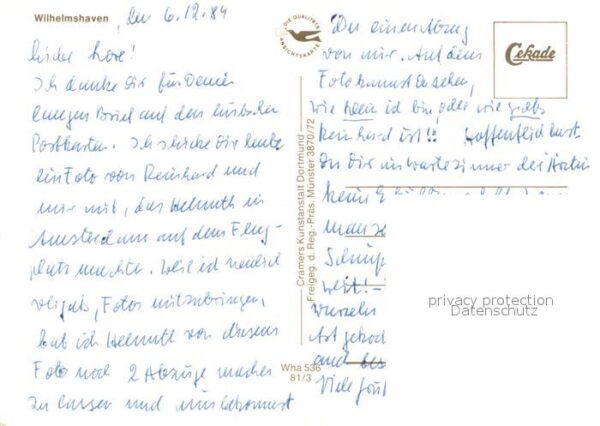 Wilhelmshaven, den 6.12.84
Liebe Lore!
Ich danke Dir für Deinen
langen Brief auf den hübschen
Postkarten. Ich schicke Dir heute
ein Foto von Reinhard und
mir mit, das Helmuth in
Amsterdam auf dem Flug-
platz machte. Weil ich neulich
vergaß, Fotos mitzubringen,
hab ich Helmuth von diesem
Foto noch 2 Abzüge machen
zu lassen und nun bekommst
Du einen Abzug
von mir. Auf dem
Foto kannst Du sehen,
wie klein ich bin, oder wie groß
Reinhard ist!! Hoffentlich hast
Du Dir im Wartezimmer der Ärztin
keine
viele
DIE QUALITÄTS
ANSICHTSKARTE
Cekade
Cramers Kunstanstalt Dortmund
Freigeg. d. Reg.-Präs. Münster 3870/72
Wha 536
81/3
privacy protection
Datenschutz